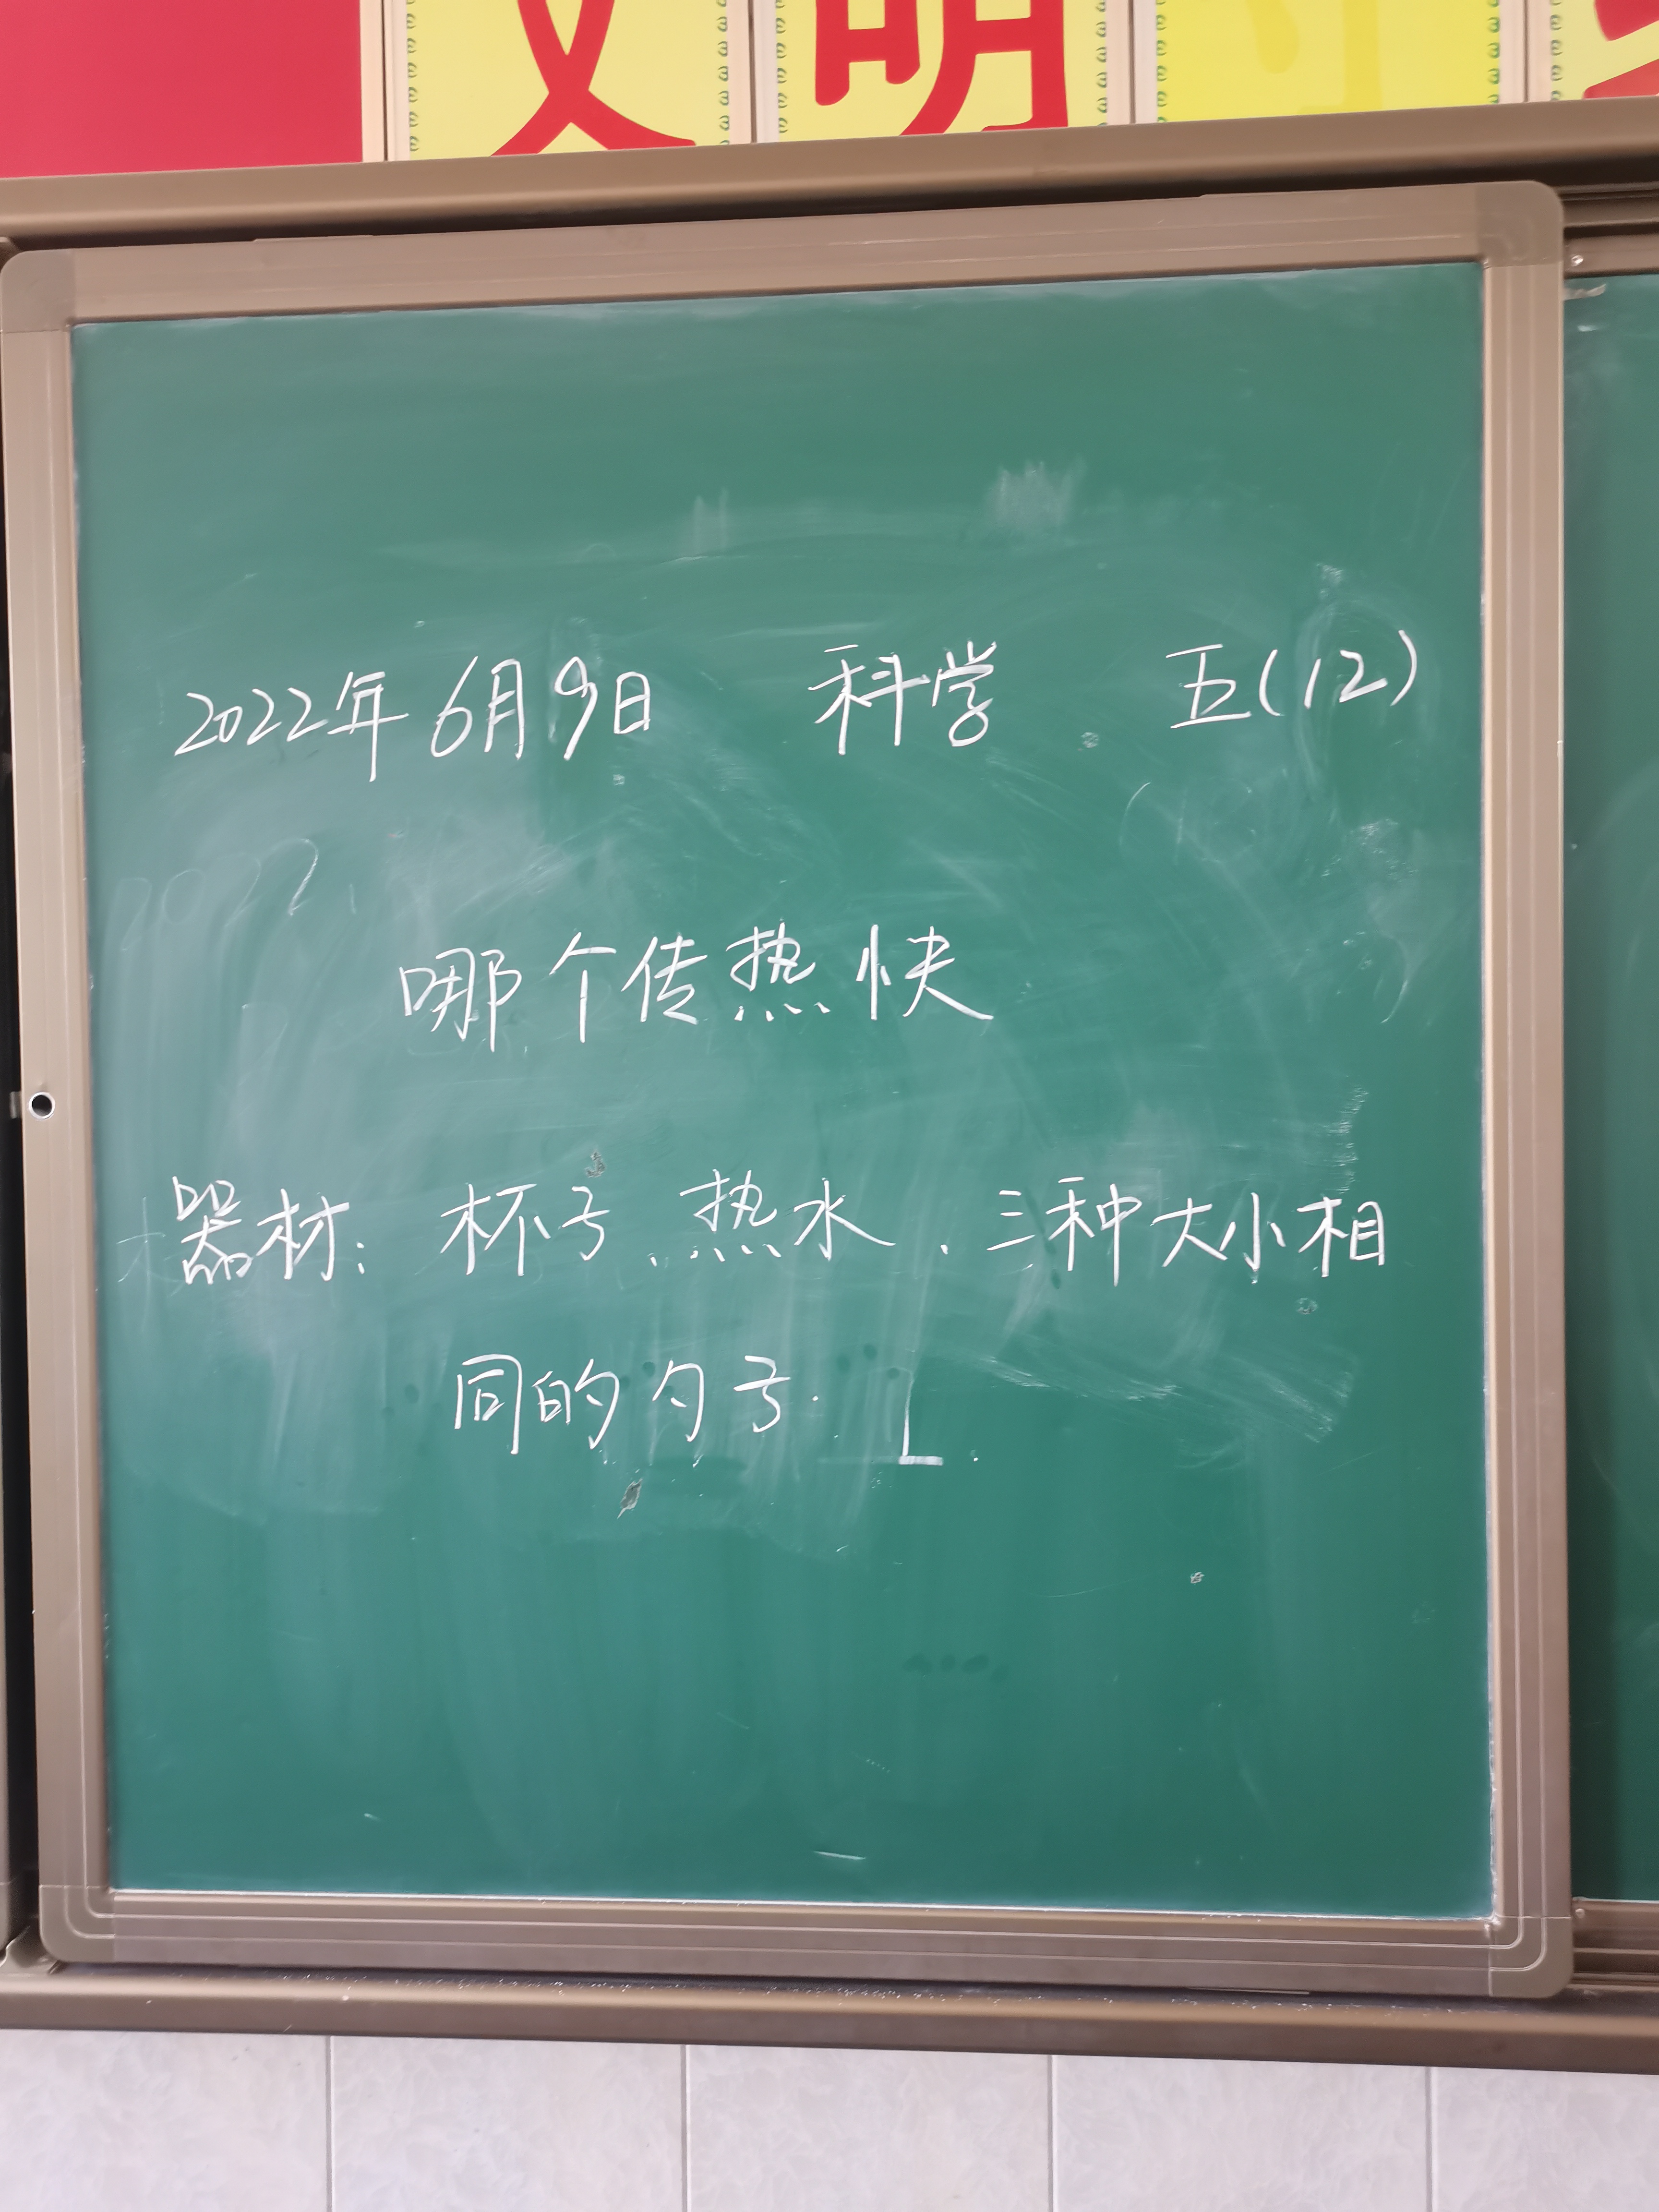 文明
2022年6月9日 科学 五(12)
哪个传热快
器材: 杯子、热水、三种大小相
同的勺子.